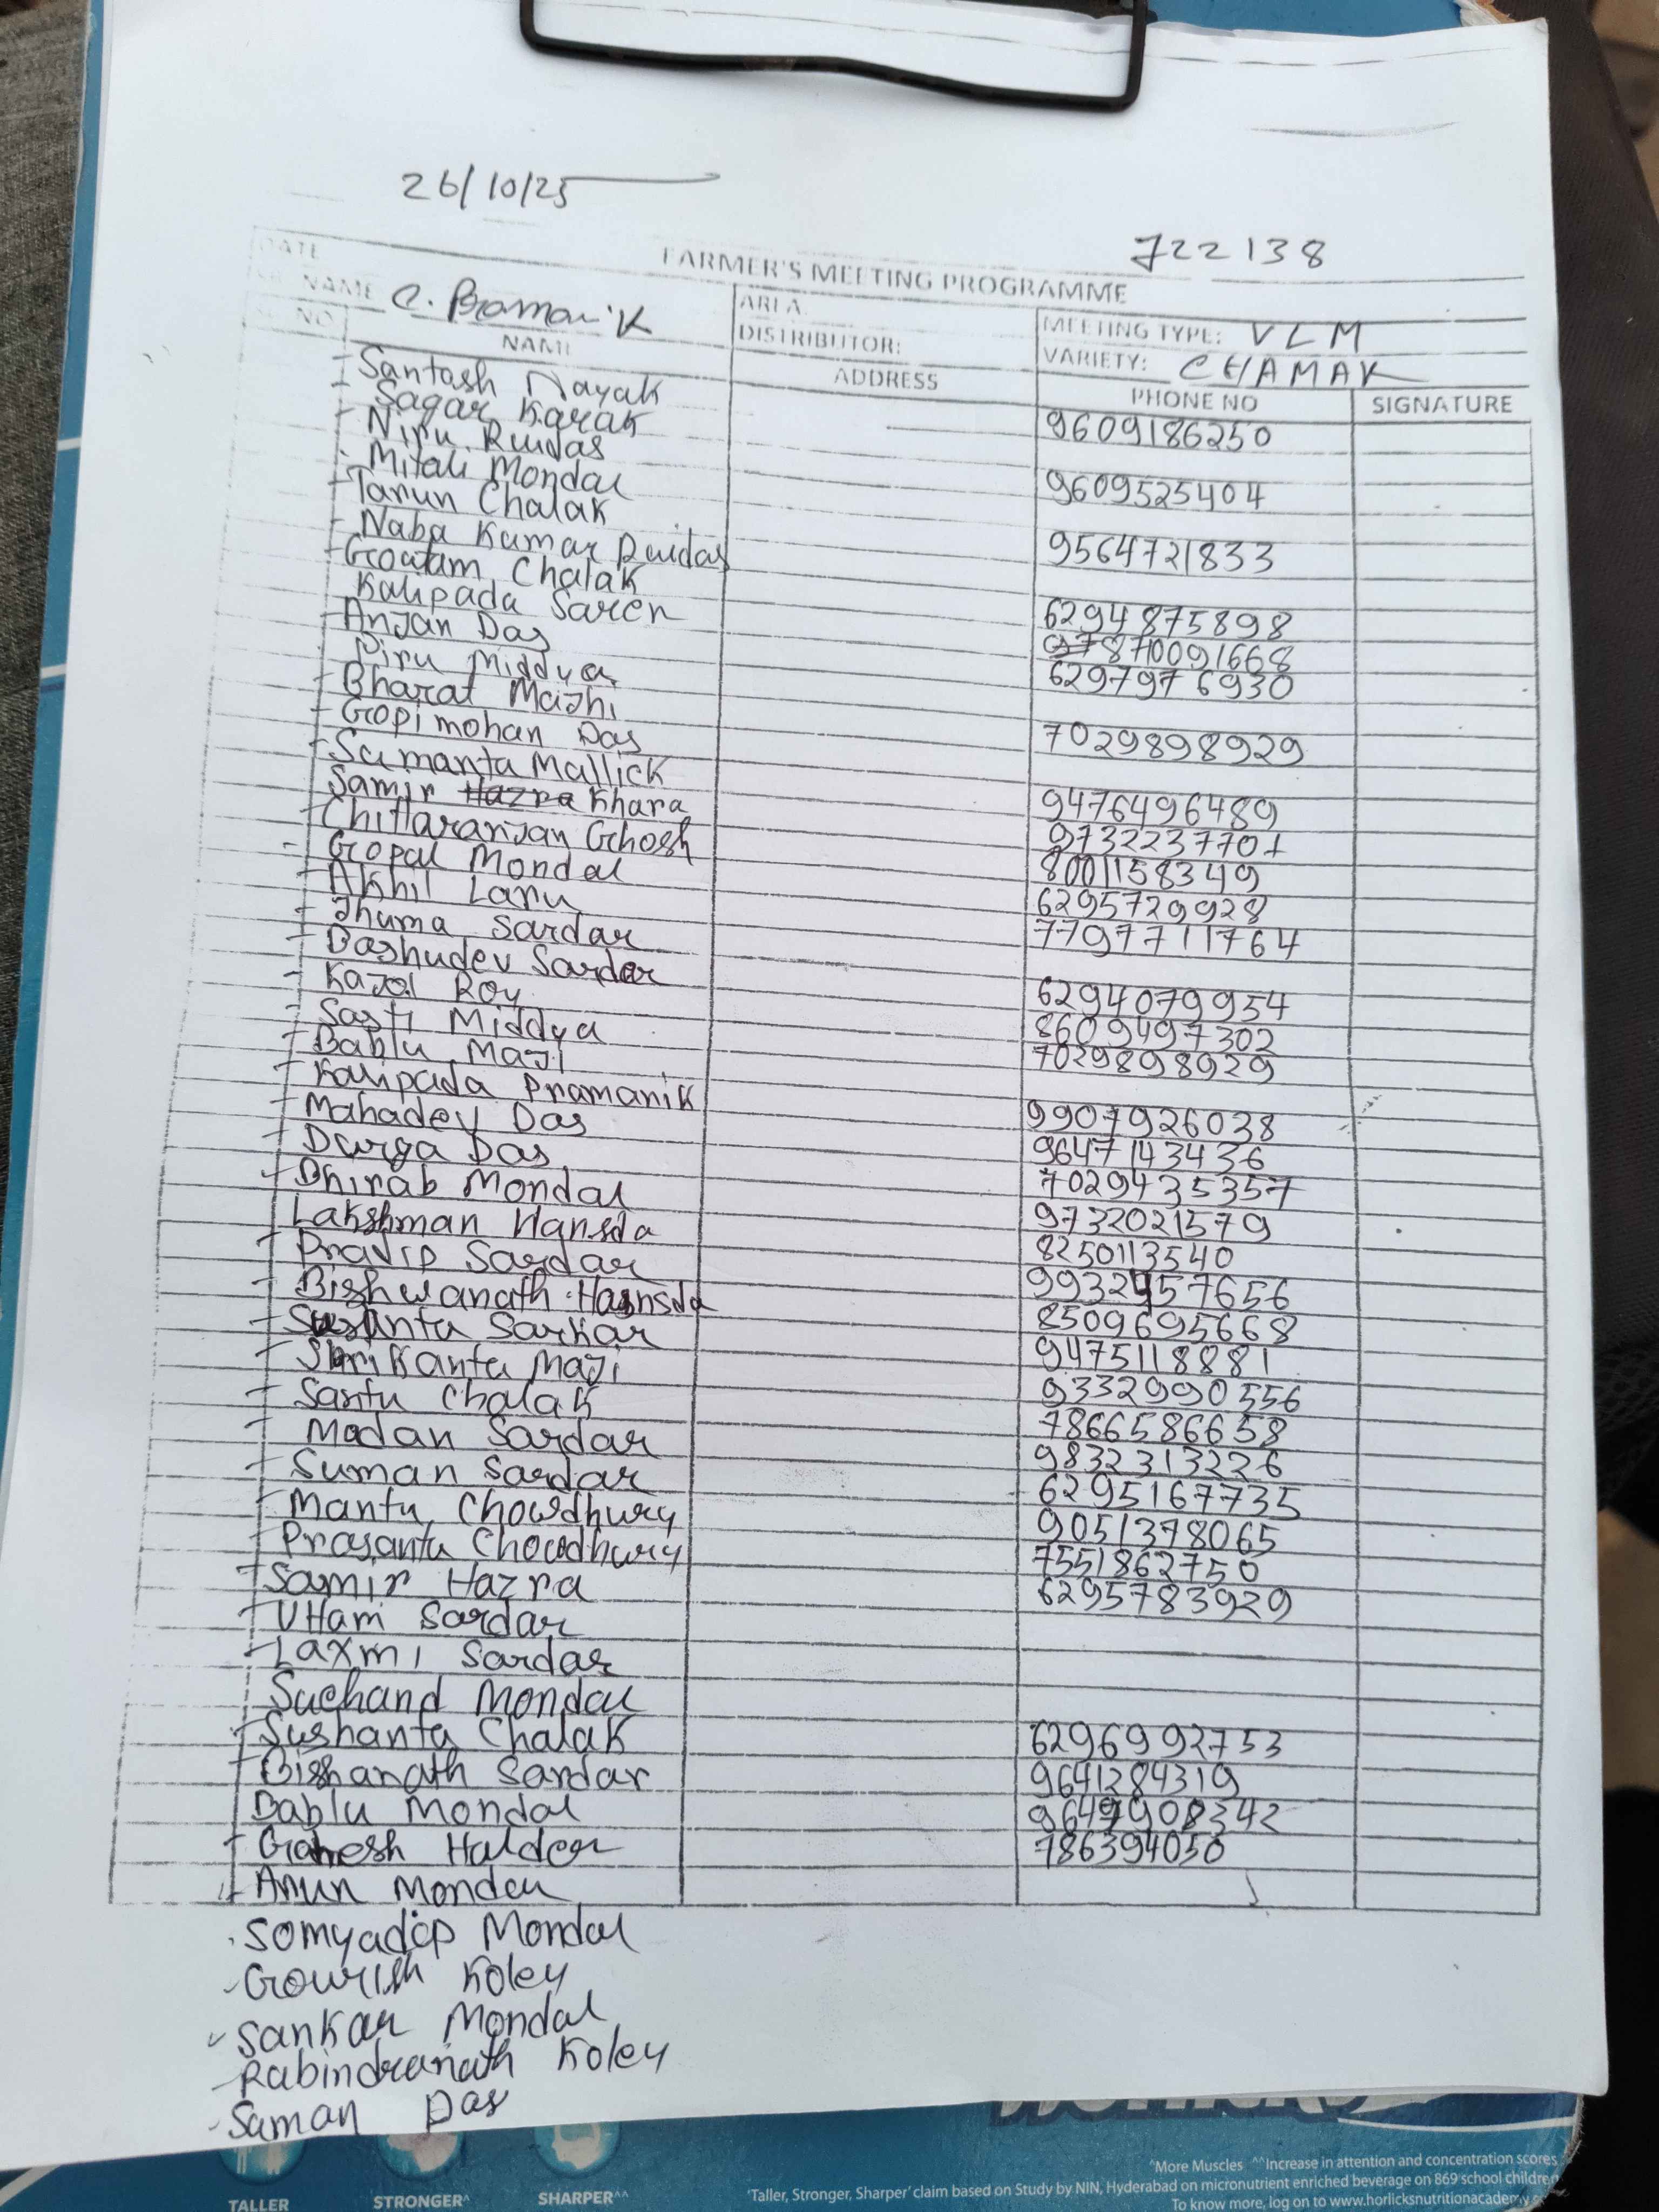 26/10/25
722138
DATE
FARMER'S MEETING PROGRAMME
NAME C. Pramanik
AREA
MEETING TYPE: VLM
NO
NAME
DISTRIBUTOR:
VARIETY: CHAMAK
ADDRESS
PHONE NO
SIGNATURE
Santash Nayak
Sagar Karak 9609186250
Niru Ruidas
Mitali Mondal 9609525404
Tarun Chalak
Naba Kumar Ruidas 9564721833
Goutam Chalak
Kalipada Saren 6294875898
Anjan Das 7871009 1668
Piru Middya 6297976930
Bharat Majhi
Gopimohan Das 7029898929
Sumanta Mallick
Samir Hazra Khara 9476496489
Chittaranjan Ghosh 9732237701
Gopal Mondal 8001158349
Akhil Laru 6295729928
Jhuma Sardar 7797711764
Bashudev Sardar
Kajal Roy 6294079954
Sasti Middya 8609497302
Bablu Maji 7029898929
Kalipada Pramanik
Mahadev Das 9907926038
Durga Das 9647143436
Bhirab Mondal 7029435357
Lakshman Hansda 9732021579
Pradip Sardar 8250113540
Bishwanath Hansda 9932457656
Susanta Sarkar 8509695668
Shrikanta Maji 9475118881
Santu Chalak 9332990556
Madan Sardar 7866586658
Suman Sardar 9832313226
Mantu Chowdhury 6295167735
Prasanta Chowdhury 9051378065
Samir Hazra 7551862750
Uttam Sardar 6295783929
Laxmi Sardar
Suchand Mondal
Sushanta Chalak 6296992753
Bishanath Sardar 9641284319
Bablu Mondal 9647908342
Ganesh Halder 786394050
Arun Mondal
Somyadip Mondal
Gourish Koley
Sankar Mondal
Rabindranath Koley
Suman Das
TALLER
STRONGER^
SHARPER^^
^More Muscles ^^Increase in attention and concentration scores
'Taller, Stronger, Sharper' claim based on Study by NIN, Hyderabad on micronutrient enriched beverage on 869 school children
To know more, log on to www.horlicksnutritionacademy